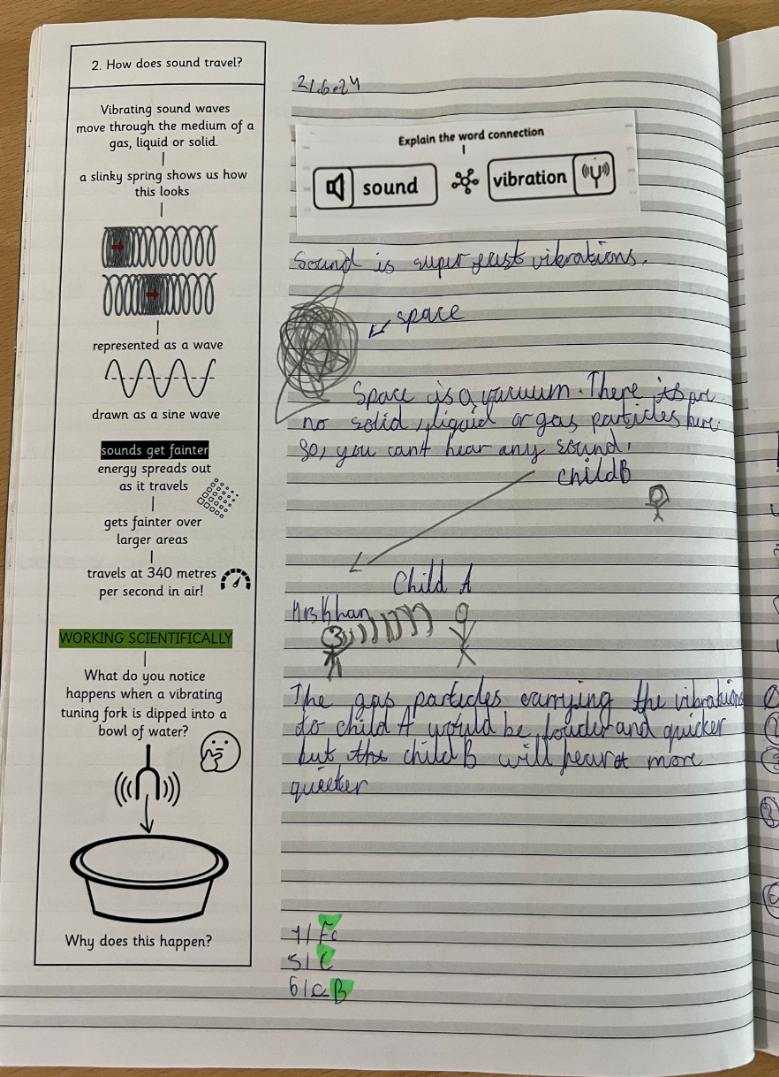 2. How does sound travel?
Vibrating sound waves
move through the medium of a
gas, liquid or solid.
a slinky spring shows us how
this looks
represented as a wave
drawn as a sine wave
sounds get fainter
energy spreads out
as it travels
gets fainter over
larger areas
travels at 340 metres
per second in air!
WORKING SCIENTIFICALLY
What do you notice
happens when a vibrating
tuning fork is dipped into a
bowl of water?
Why does this happen?
21.6.24
Explain the word connection
sound
vibration
Sound is super fast vibrations.
space
Space is a vacuum. There are
no solid, liquid or gas particles
So, you cant hear any sound.
child B
Child A
Mrs Khan
The gas particles carrying the vibrations
to child A would be louder and quicker
but the child B will hear it more
queiter
5/C